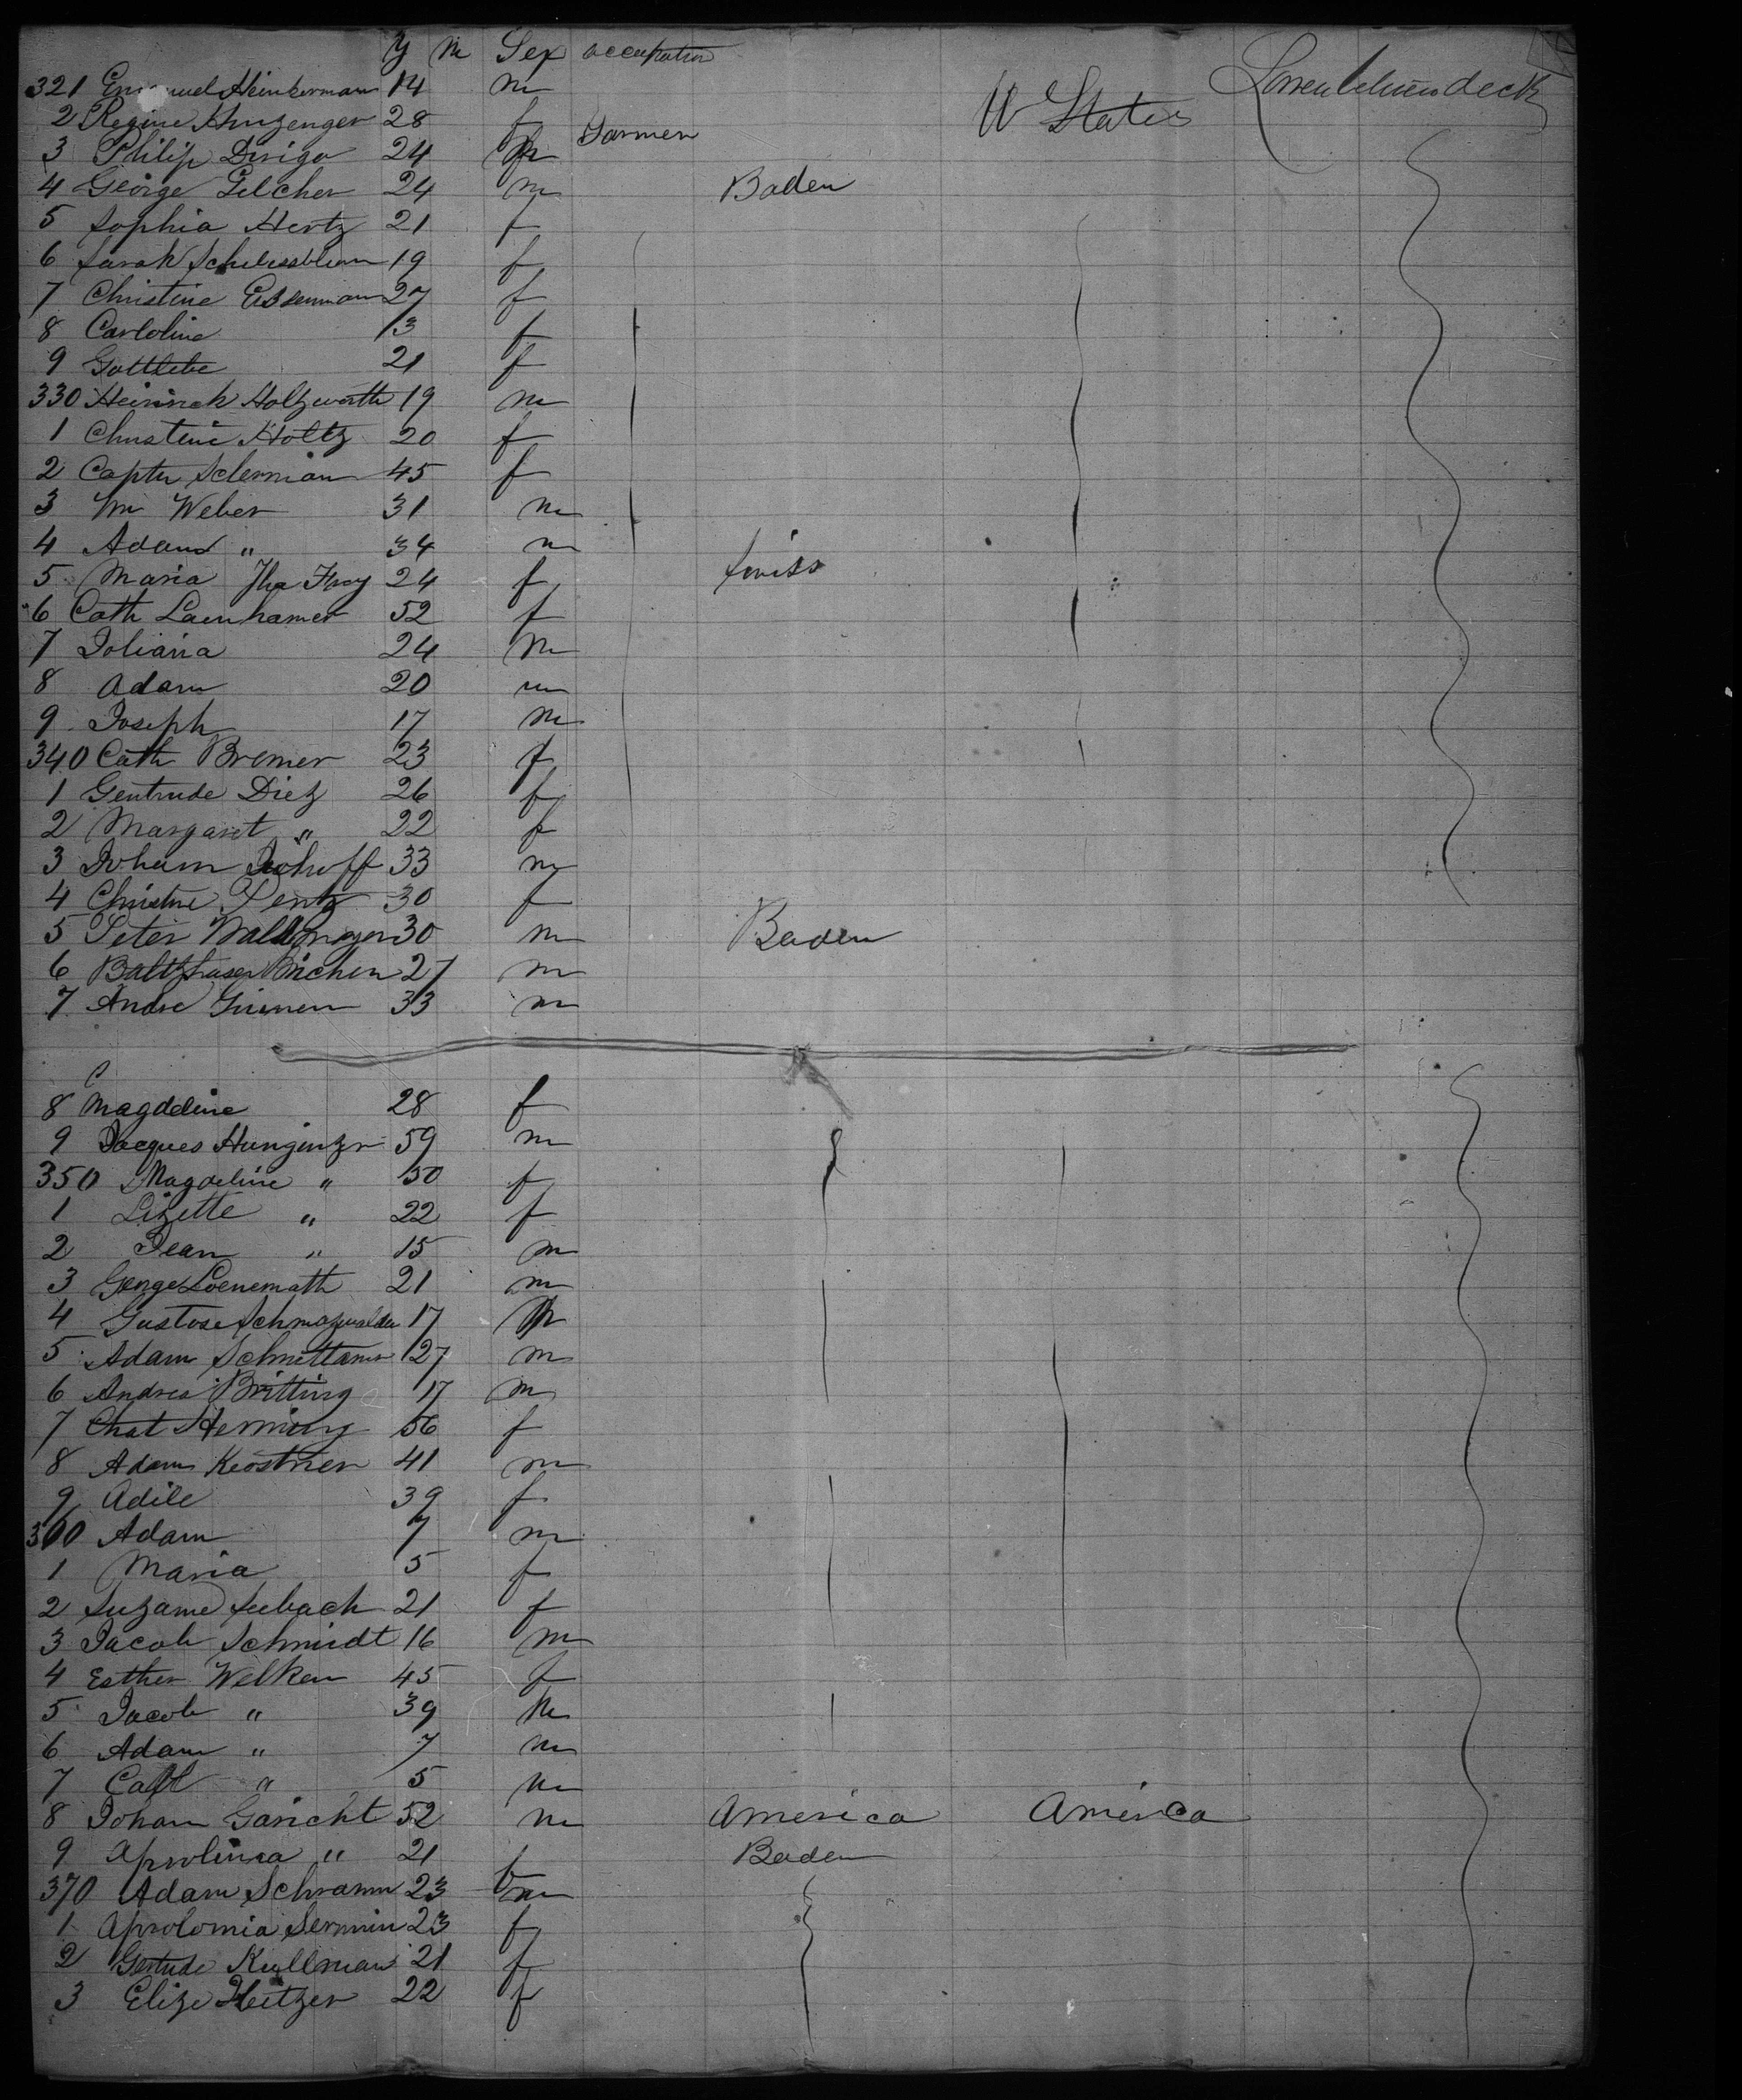 y m Sex occupation
321 Emanuel Heinkerman 14 m
2 Regine 28 f W States
3 Philip Dirigo 24 m Farmer
4 George Gilcher 24 m Baden
5 Sophia Hertz 21 f
6 Sarah 19 f
7 Christine Eisenman 27 f
8 Carloline 13 f
9 Gottlebe 21 f
330 Heinrich Holtzwarth 19 m
1 Christine Holtz 20 f
2 45 f
3 Wm Weber 31 m
4 Adam " 34 m
5 Maria 24 f Swiss
6 Cath Launhamer 52 f
7 Joliana 24 m
8 Adam 20 m
9 Joseph 17 m
340 Cath Bremer 23 f
1 Gentrude Diez 26 f
2 Margaret " 22 f
3 Johann 33 m
4 Christine Pentz 30 f
5 Peter 30 m Baden
6 27 m
7 Andre 33 m
8 Magdeline 28 f
9 Jacques 59 m
350 Magdeline " 50 f
1 Lizette " 22 f
2 Jean " 15 m
3 George 21 m
4 17 m
5 Adam 27 m
6 Andrea Britting 17 m
7 Chat Herming 56 f
8 Adam Keostner 41 m
9 Adile 39 f
360 Adam 7 m
1 Maria 5 f
2 Suzame Seebach 21 f
3 Jacob Schmidt 16 m
4 Esther Welker 45 f
5 Jacob " 39 m
6 Adam " 7 m
7 Carl " 5 m
8 Johan Garicht 52 m America America
9 Aprolinia " 21 f Baden
370 Adam Schramm 23 m
1 Aprolomia 23 f
2 Gertude Kullman 21 f
3 Elize Heitzer 22 f